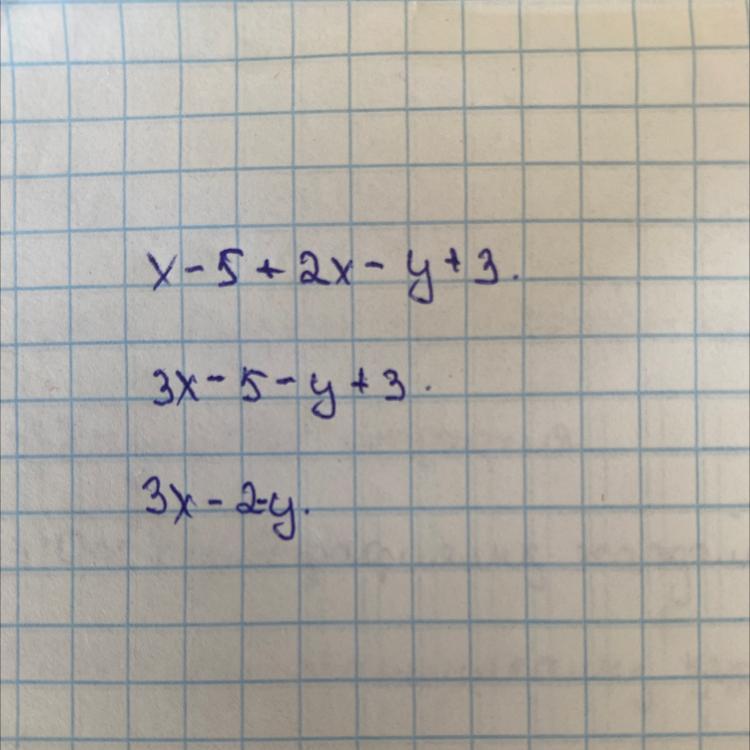 x - 5 + 2x - y + 3.
3x - 5 - y + 3.
3x - 2 - y.